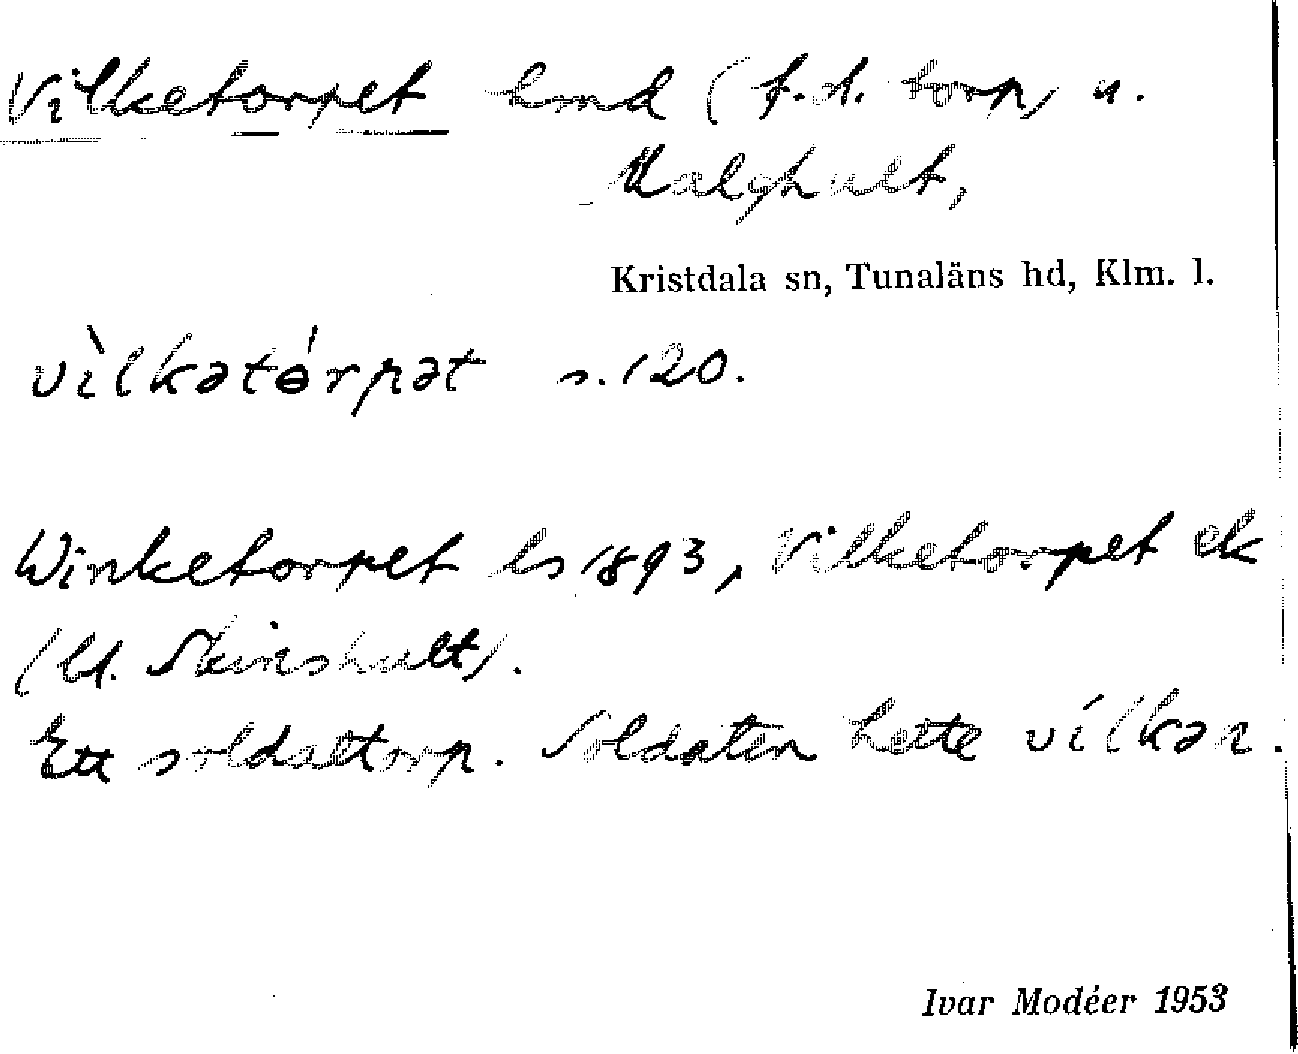 Vilketorpet lmd (f.d. torp) u.
Malghult,
Kristdala sn, Tunaläns hd, Klm. l.
vìlkətɵ́rpət s. 120.
Winketorpet ls 1893, Vilketorpet ek
(Ul. Skinshult).
Ett soldattorp. Soldaten hette vílkən.
Ivar Modéer 1953